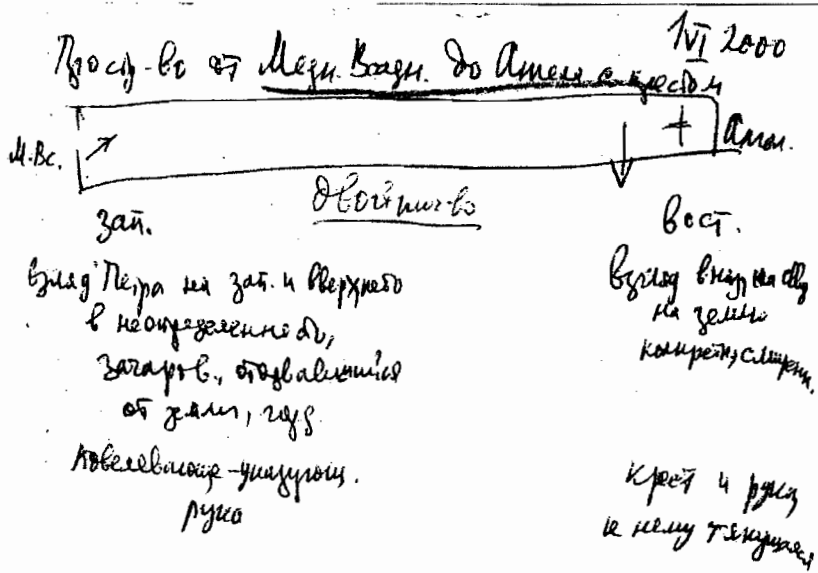 1 VI 2000
Простр-во от Медн. Всадн. до Ангела с крестом
М.Вс. Англ.
двойнич-во
зап. вост.
взгляд Петра на зап. и вверх, небо
в неопределенность,
зачаров., оторвавшийся
от земли,
повелевающе-указующ.
рука
взгляд вниз, на
на землю
конкретн., смирен.
крест и рука,
к нему тянущаяся